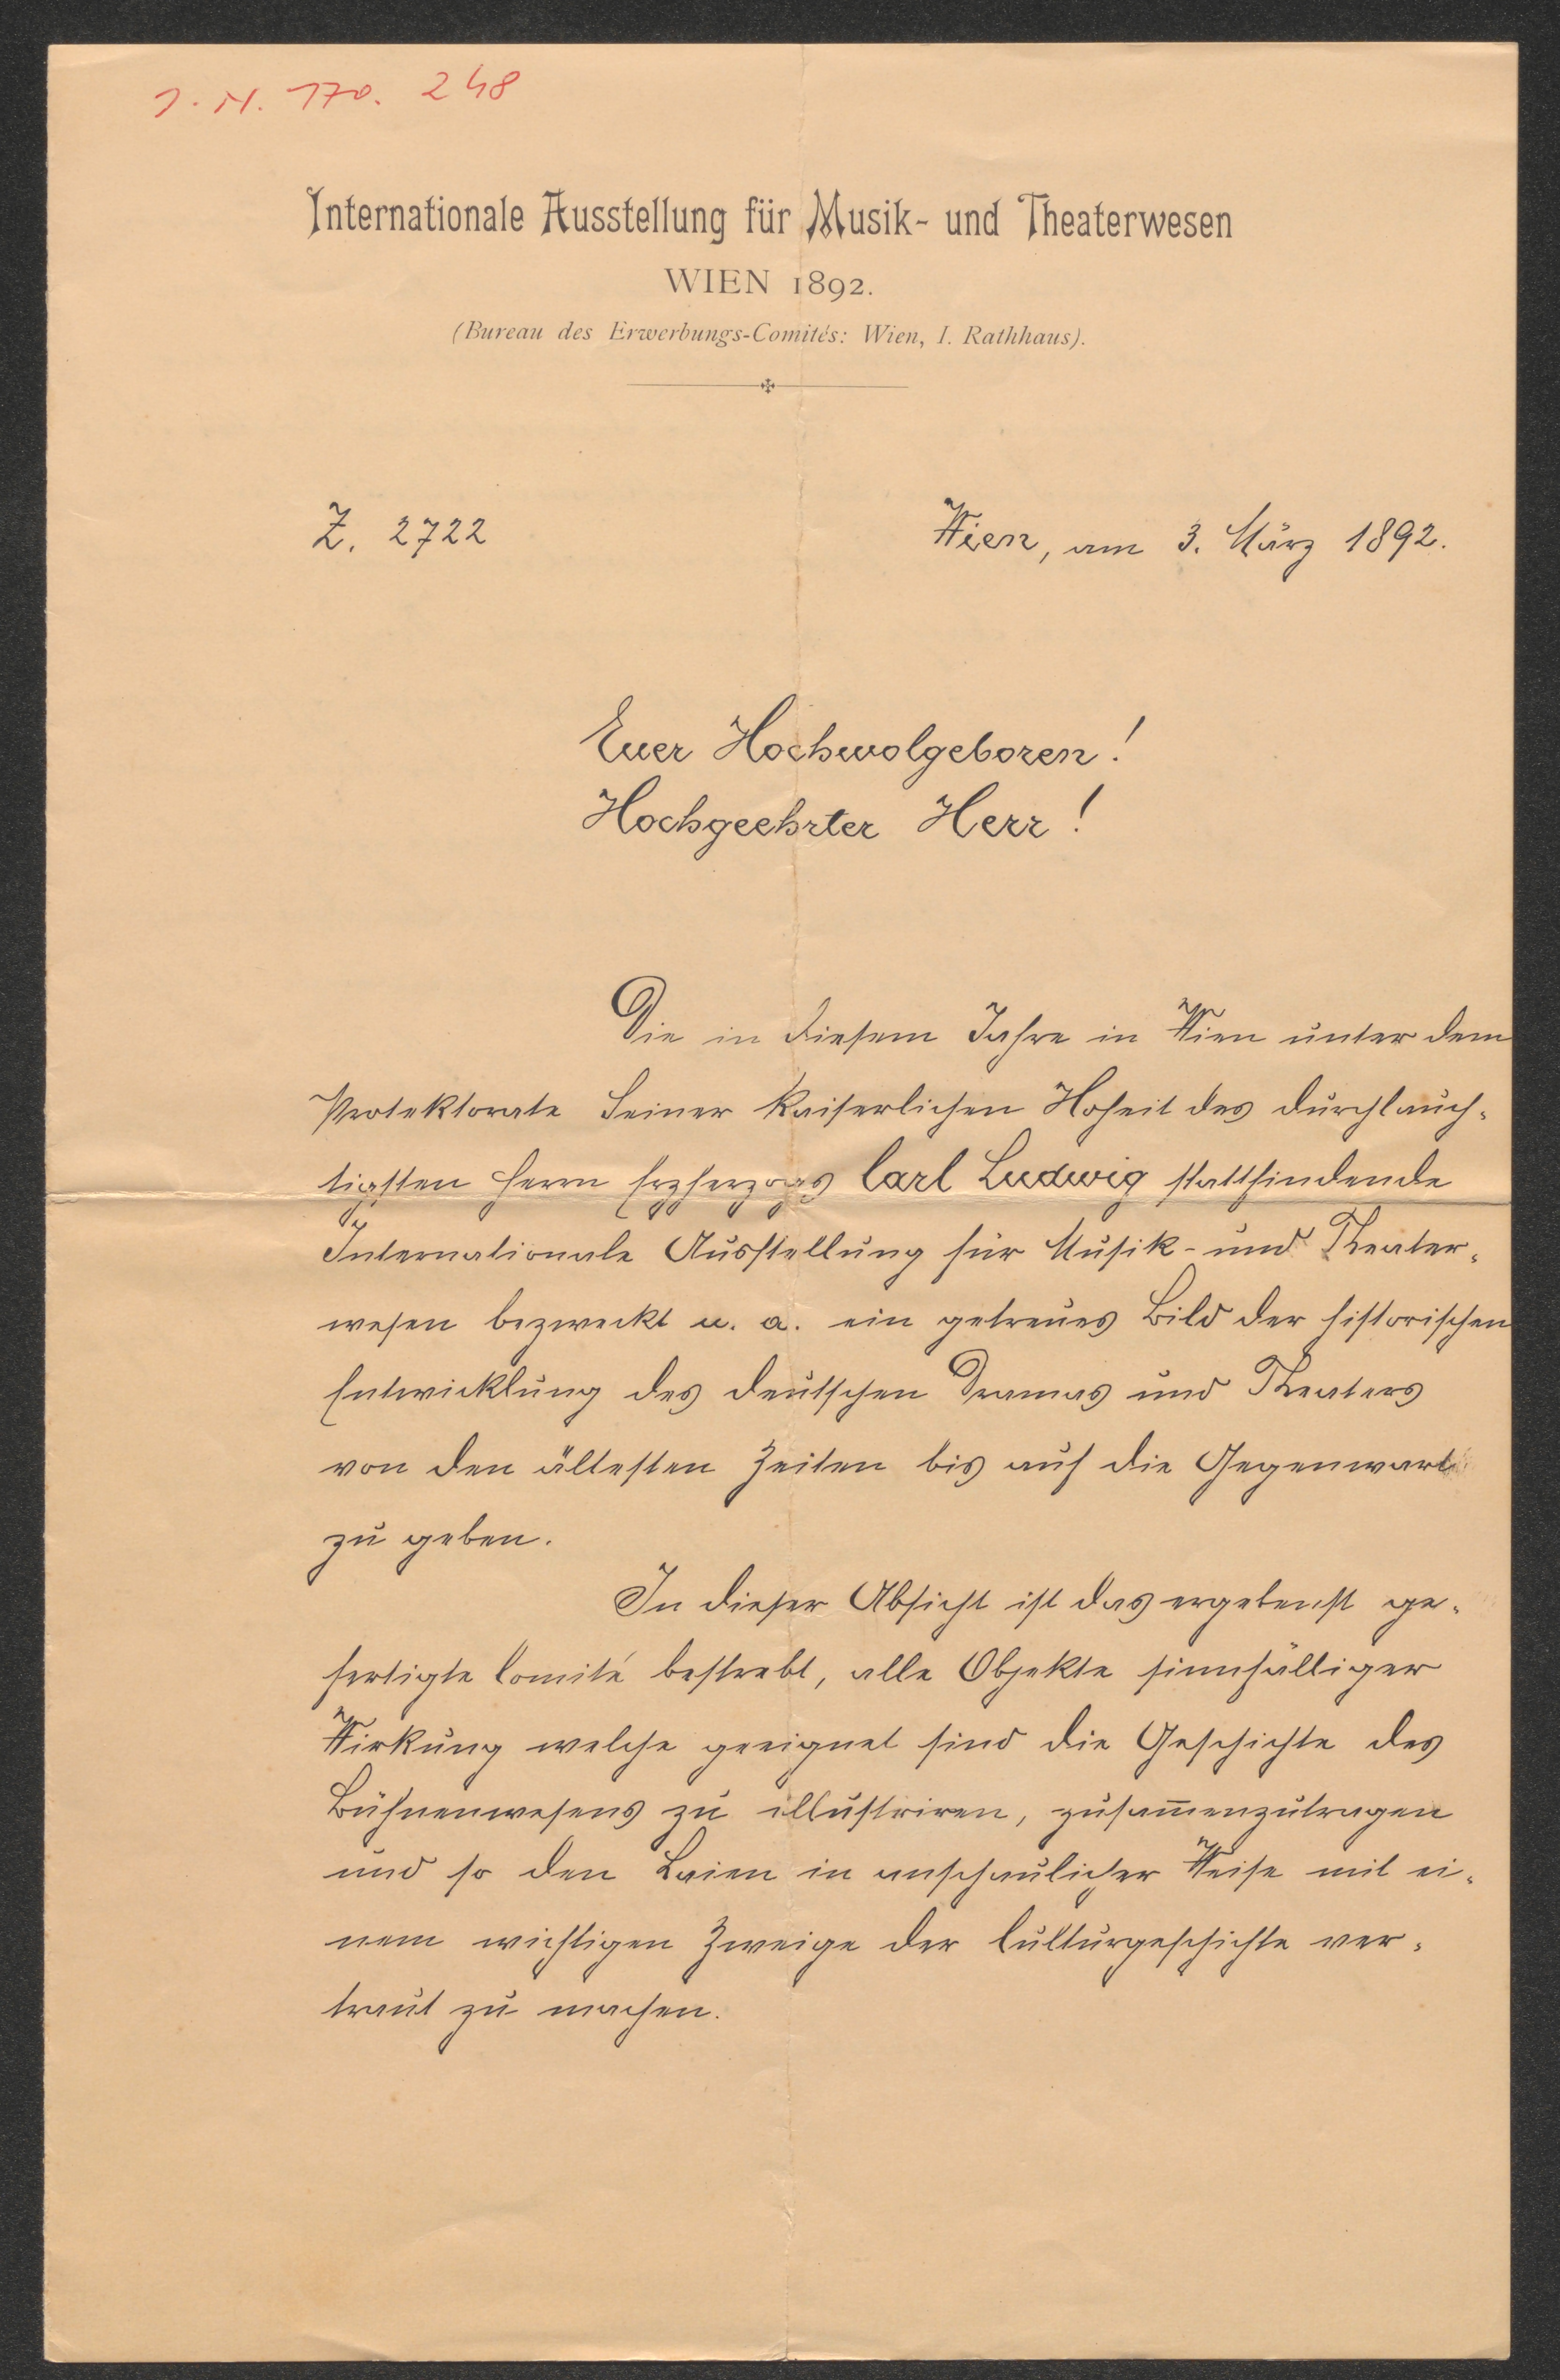 J. N. 170. 248
Internationale Ausstellung für Musik- und Theaterwesen
WIEN 1892.
(Bureau des Erwerbungs-Comités: Wien, I. Rathhaus).
Z. 2722
Wien, am 3. März 1892.
Euer Hochwolgeboren!
Hochgeehrter Herr!
Die in diesem Jahre in Wien unter dem
Protektorate Seiner Kaiserlichen Hoheit des durchlauch-
tigsten Herrn Erzherzogs Carl Ludwig stattfindende
Internationale Ausstellung für Musik- und Theater-
wesen bezweckt u. a. ein getreues Bild der historischen
Entwicklung des deutschen Dramas und Theaters
von den ältesten Zeiten bis auf die Gegenwart
zu geben.
In dieser Absicht ist das ergebenst ge-
fertigte Comité bestrebt, alle Objekte sinnfälliger
Wirkung welche geeignet sind die Geschichte des
Bühnenwesens zu illustriren, zusam̄enzutragen
und so den Laien in anschaulicher Weise mit ei-
nem wichtigen Zweige der Culturgeschichte ver-
traut zu machen.